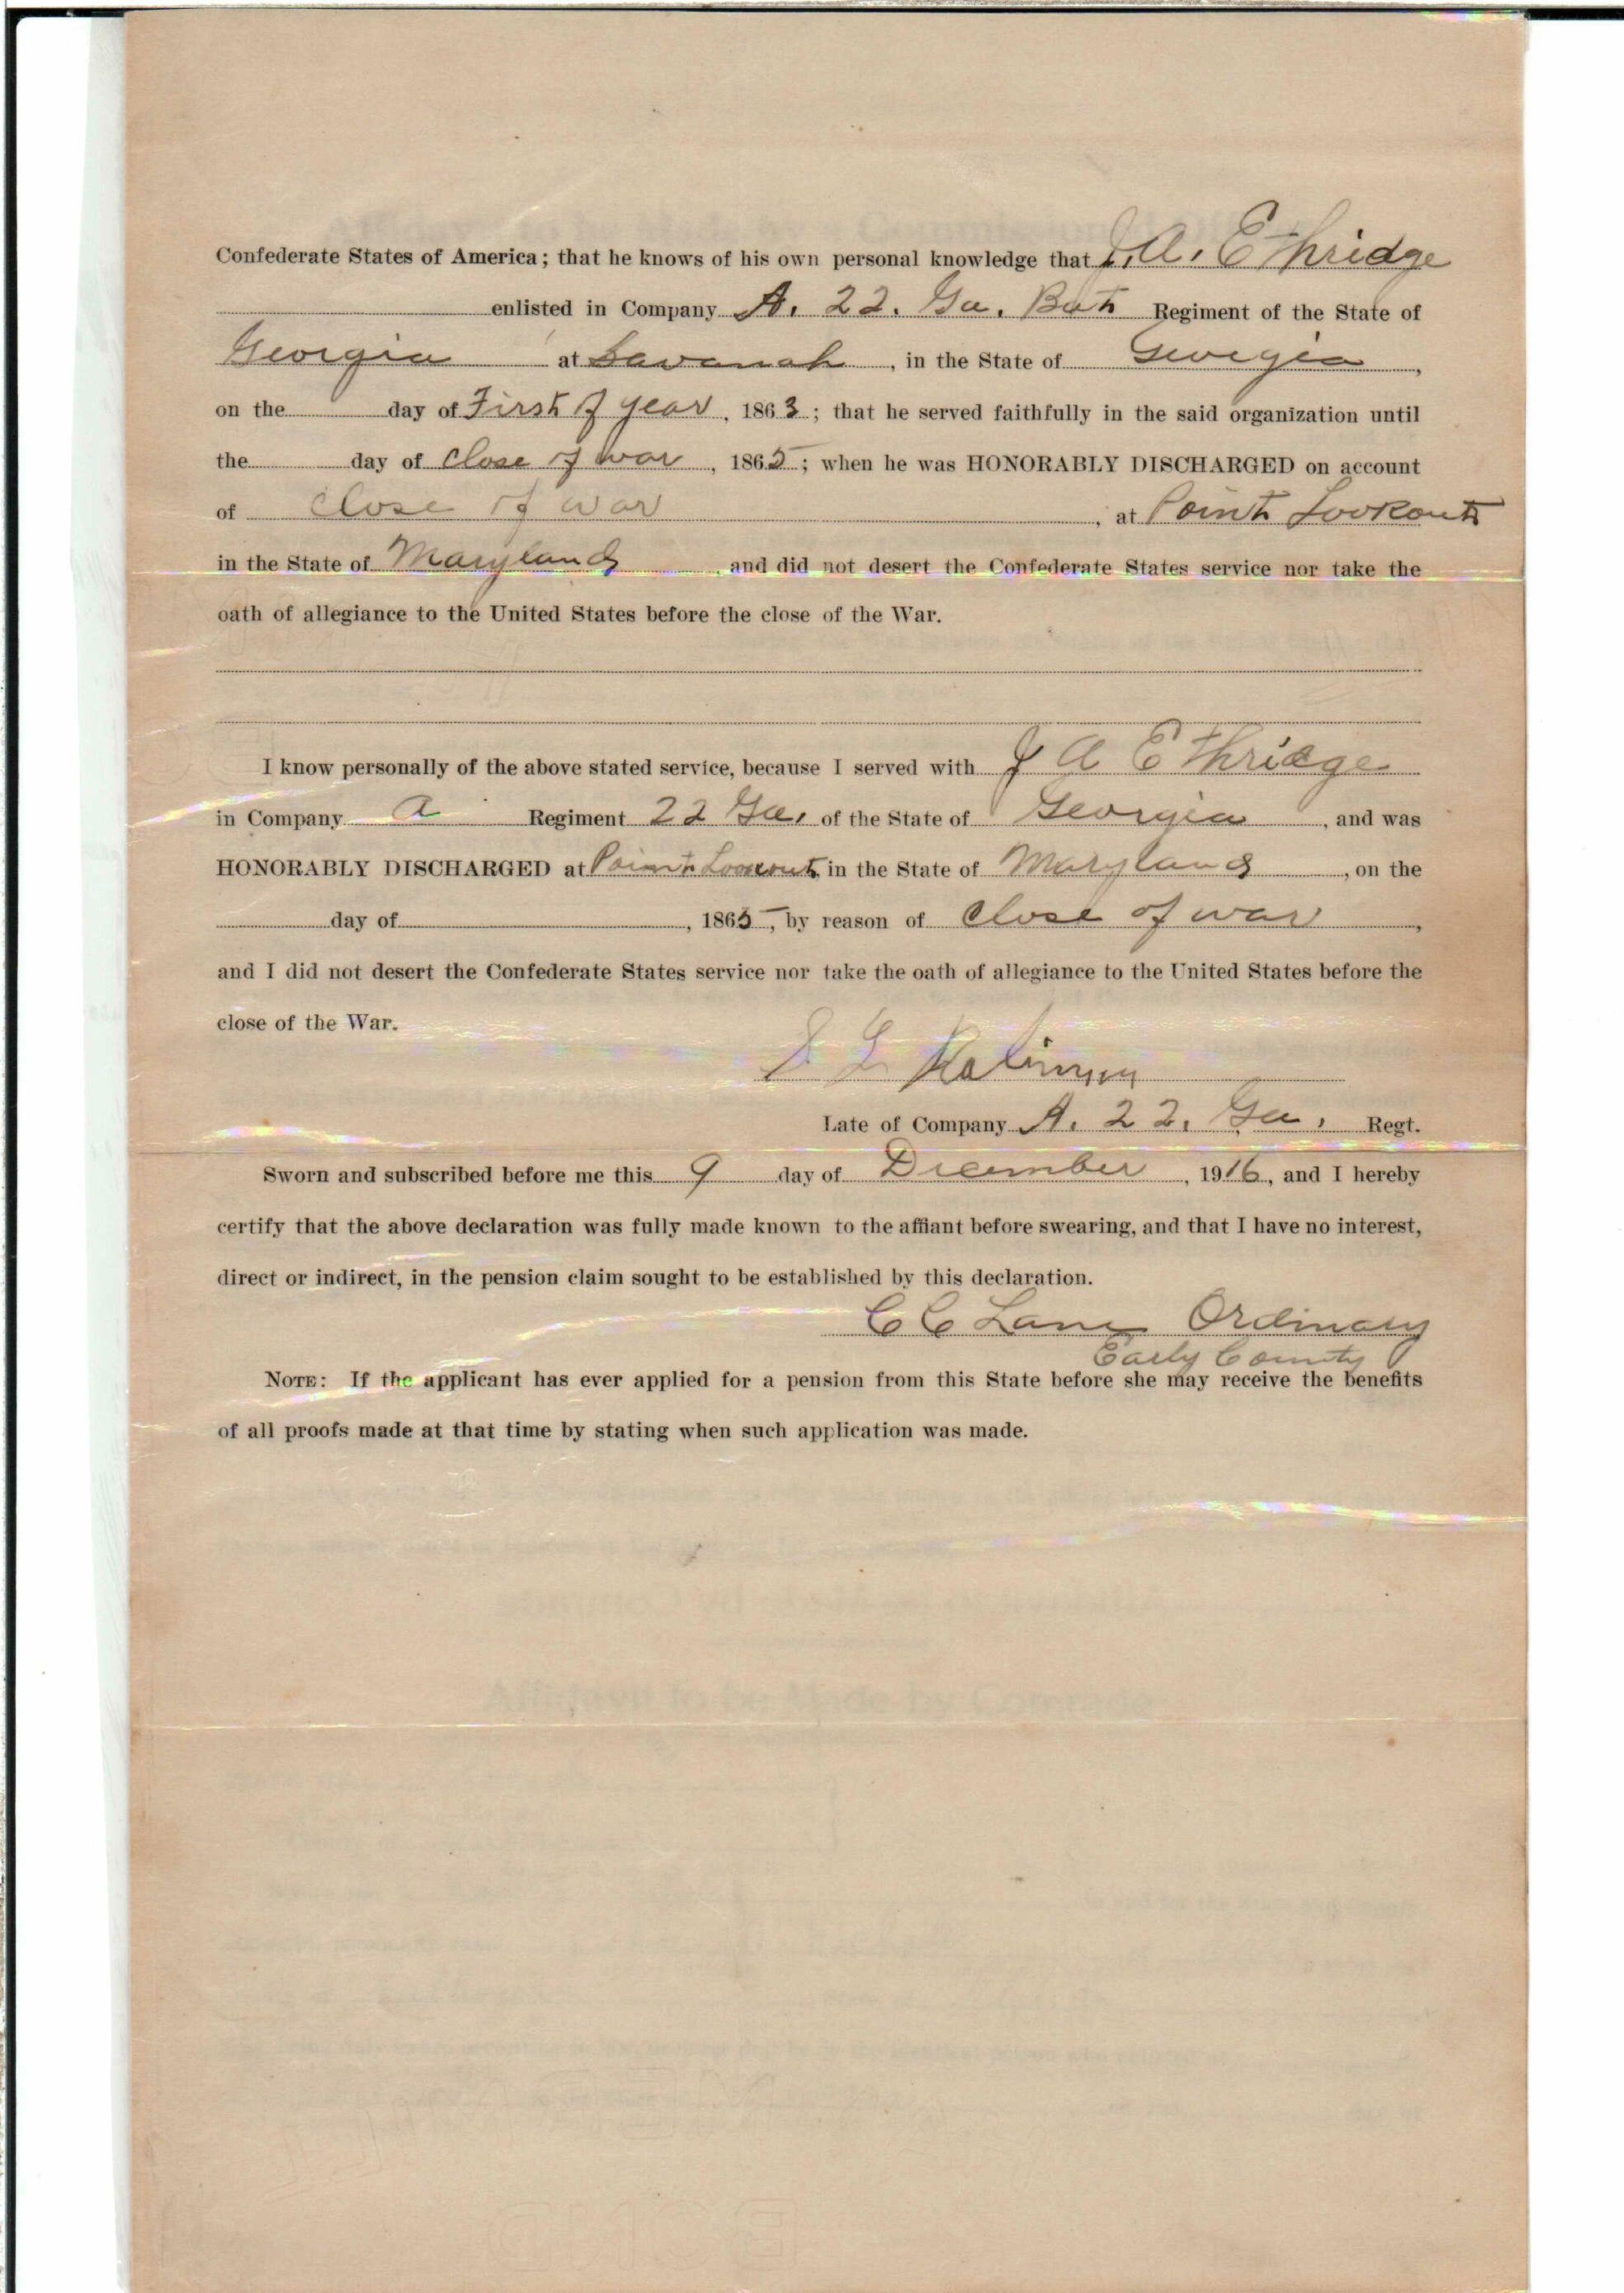 Confederate States of America; that he knows of his own personal knowledge that J. A. Ethridge
enlisted in Company A. 22. Ga. Bat Regiment of the State of
Georgia at Savanah, in the State of Georgia,
on the day of First of year, 1863; that he served faithfully in the said organization until
the day of Close of war, 1865; when he was HONORABLY DISCHARGED on account
of Close of war, at Point Lookout
in the State of Maryland and did not desert the Confederate States service nor take the
oath of allegiance to the United States before the close of the War.
I know personally of the above stated service, because I served with J A Ethridge
in Company A Regiment 22 Ga. of the State of Georgia, and was
HONORABLY DISCHARGED at Point Lookout, in the State of Maryland, on the
day of, 1865, by reason of Close of war,
and I did not desert the Confederate States service nor take the oath of allegiance to the United States before the
close of the War.
Late of Company A. 22. Ga. Regt.
Sworn and subscribed before me this 9 day of December, 1916, and I hereby
certify that the above declaration was fully made known to the affiant before swearing, and that I have no interest,
direct or indirect, in the pension claim sought to be established by this declaration.
C C Lane Ordinary
Early County
NOTE: If the applicant has ever applied for a pension from this State before she may receive the benefits
of all proofs made at that time by stating when such application was made.
Affidavit to be Made by Comrade